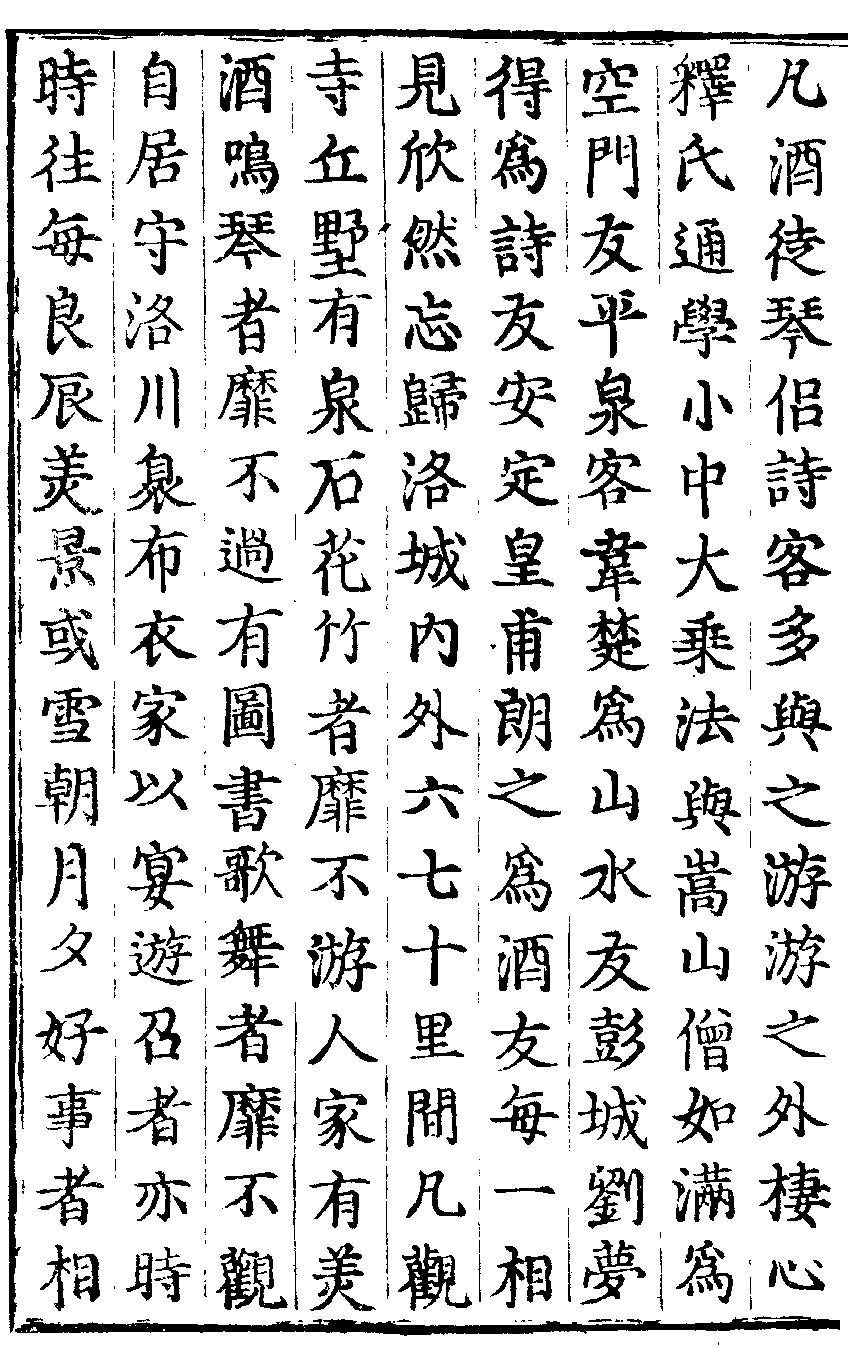 凡酒徒琴侣詩客多與之游游之外棲心
釋氏通學小中大乗法與嵩山僧如滿爲
空門友平泉客韋楚爲山水友彭城劉夢
得爲詩友安定皇甫朗之爲酒友每一相
見欣然忘歸洛城内外六七十里間凡觀
寺丘墅有泉石花竹者靡不游人家有羙
酒鳴琴者靡不過有圖書歌舞者靡不觀
自居守洛川泉布衣家以宴遊召者亦時
時往每良辰羙景或雪朝月夕好事者相